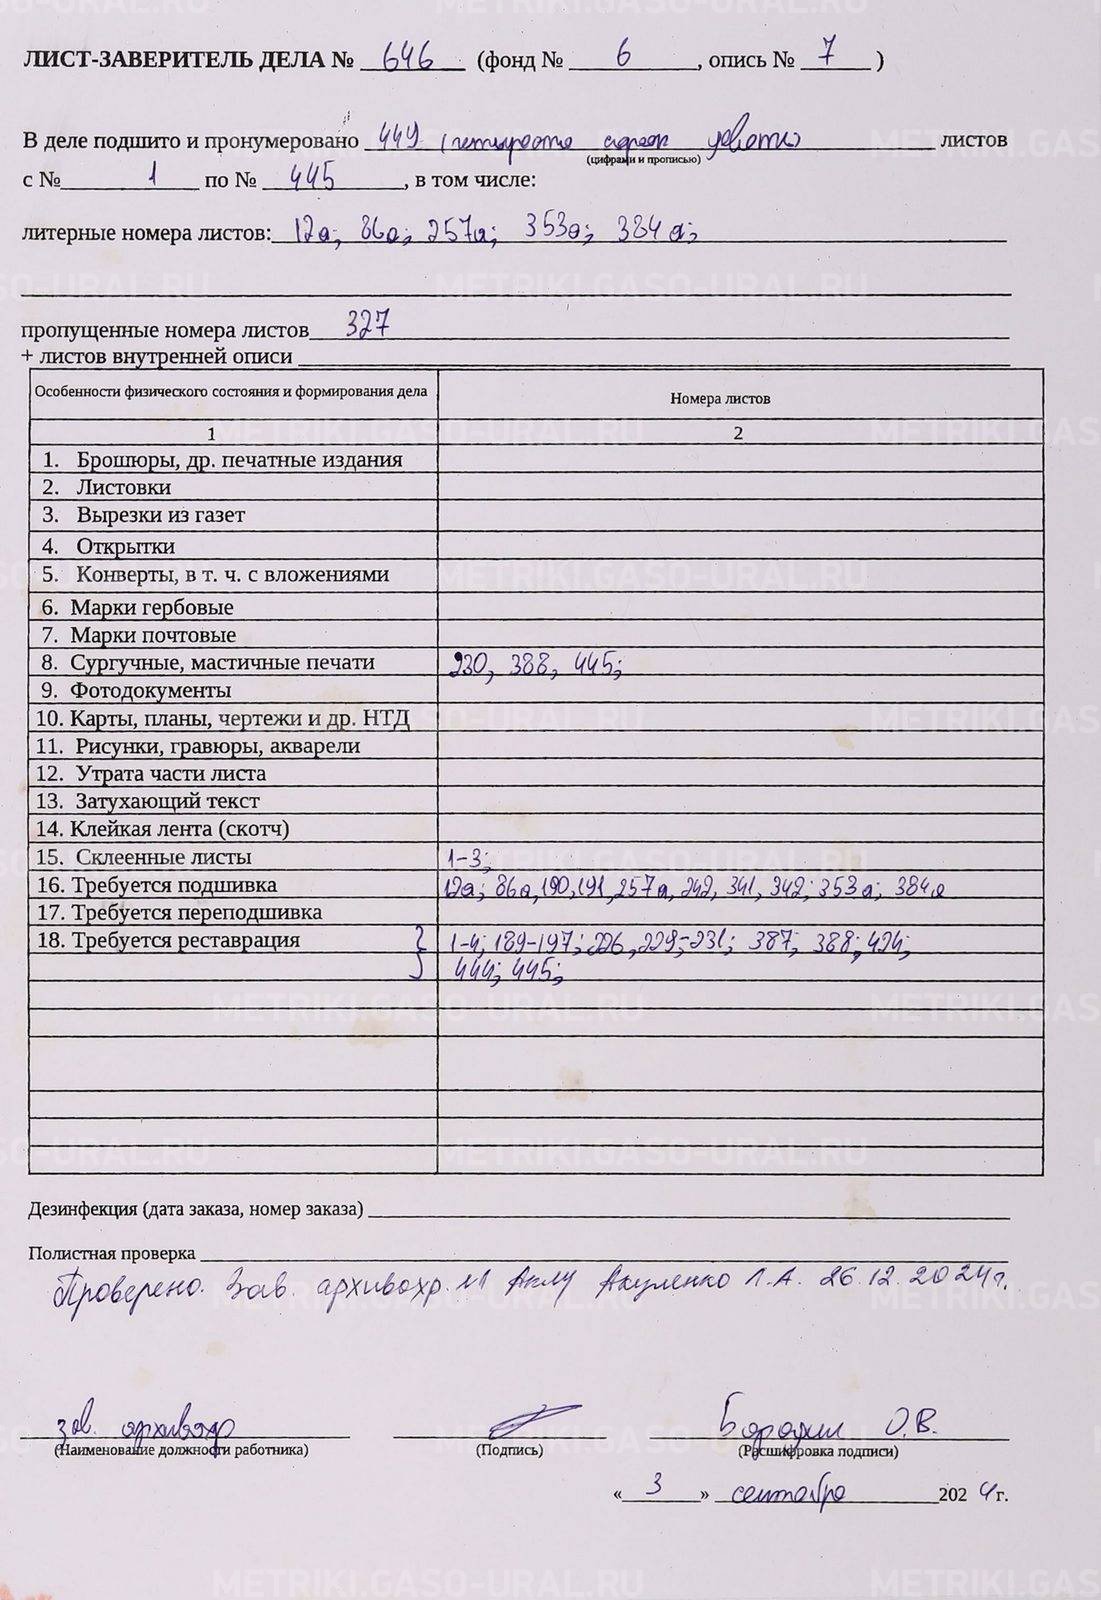 ЛИСТ-ЗАВЕРИТЕЛЬ ДЕЛА № 646 (фонд № 6, опись № 7)
В деле подшито и пронумеровано 449 (четыреста сорок девять) листов
(цифрами и прописью)
с № 1 по № 445, в том числе:
литерные номера листов: 12а; 86а; 257а; 353а; 384а;
пропущенные номера листов 327
+ листов внутренней описи
Особенности физического состояния и формирования дела Номера листов
1 2
1. Брошюры, др. печатные издания
2. Листовки
3. Вырезки из газет
4. Открытки
5. Конверты, в т. ч. с вложениями
6. Марки гербовые
7. Марки почтовые
8. Сургучные, мастичные печати 230, 388, 445;
9. Фотодокументы
10. Карты, планы, чертежи и др. НТД
11. Рисунки, гравюры, акварели
12. Утрата части листа
13. Затухающий текст
14. Клейкая лента (скотч)
15. Склеенные листы 1-3;
16. Требуется подшивка 12а; 86а, 190, 191, 257а, 242, 341, 342; 353а; 384а
17. Требуется переподшивка
18. Требуется реставрация 1-4; 189-197; 226, 229-231; 387; 388; 424;
444; 445;
Дезинфекция (дата заказа, номер заказа)
Полистная проверка
Проверено. Зав. архивохр. №1 Акуленко Л.А. 26.12.2024г.
зав. архивохр Бородин О.В.
(Наименование должности работника) (Подпись) (Расшифровка подписи)
« 3 » сентября 2024г.
METRIKI.GASO-URAL.RU